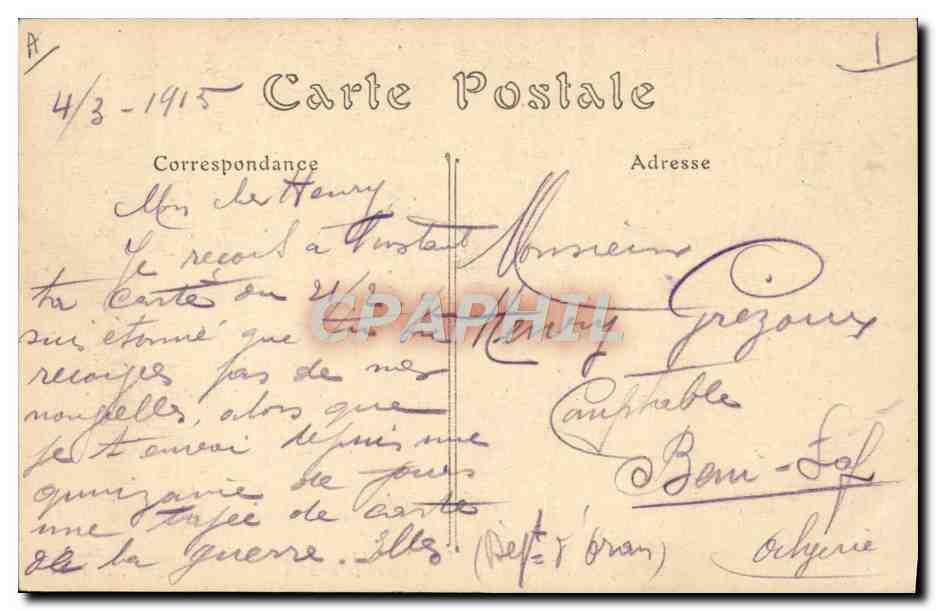 A
1
4/3 - 1915
Carte Postale
Correspondance
Mon cher Henry
Je reçois à l'instant
ta carte du 21/2
suis étonné que tu ne
reçoives pas de mes
nouvelles, alors que
je t'envoi depuis une
quinzaine de jours
une de carte
de la guerre. Elles
Adresse
Monsieur
Henry Grezoux
Comptable
Beni-Saf
(Dépt d'Oran)
Algérie
CPAPHIL